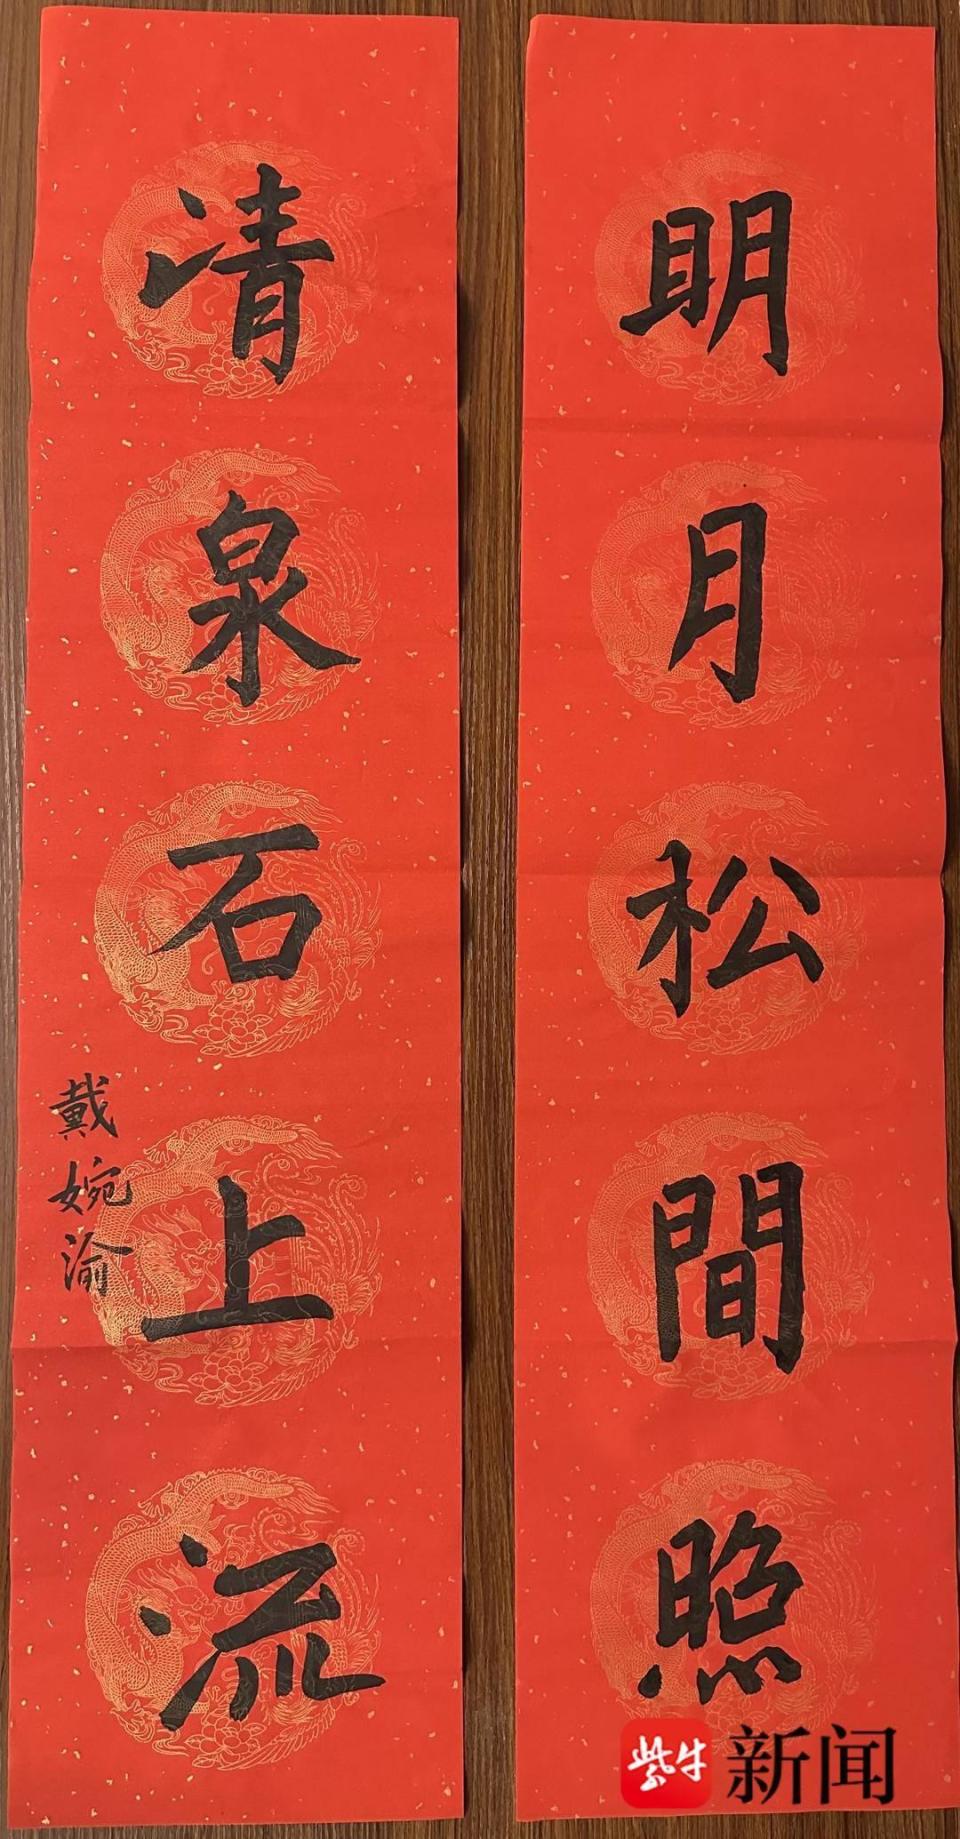 明月松間照
清泉石上流
戴婉渝
紫牛新闻